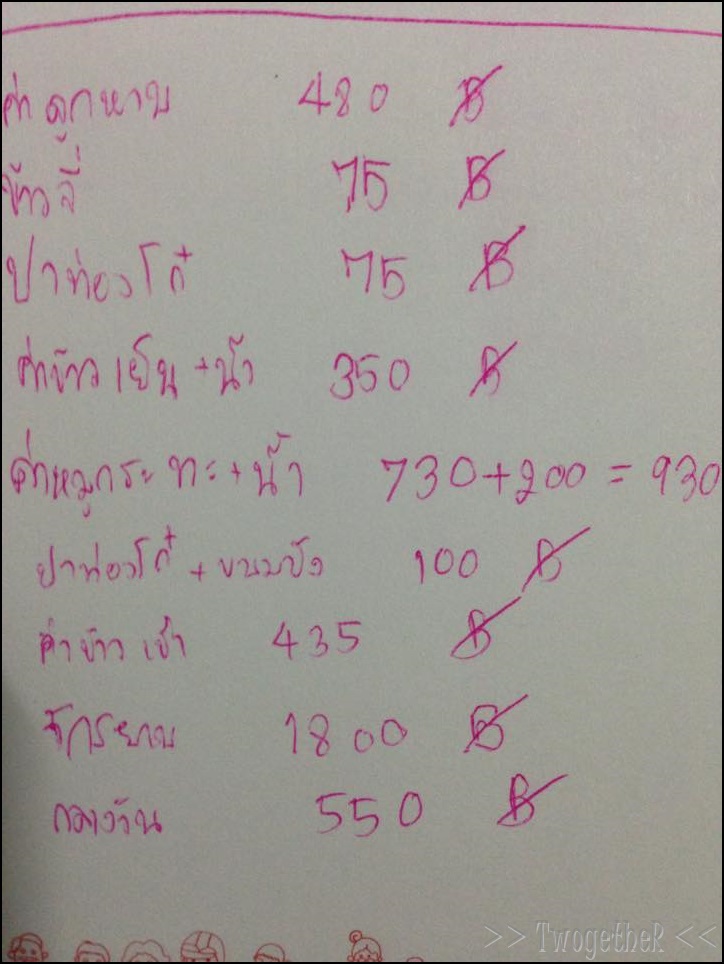 ค่าลูกหาบ 480 ฿
ข้าวจี่ 75 ฿
ปาท่องโก๋ 75 ฿
ค่าข้าวเย็น + น้ำ 350 ฿
ค่าหมูกระทะ + น้ำ 730 + 200 = 930
ปาท่องโก๋ + ขนมปัง 100 ฿
ค่าข้าวเช้า 435 ฿
จักรยาน 1800 ฿
กลางวัน 550 ฿
>> TwogetheR <<